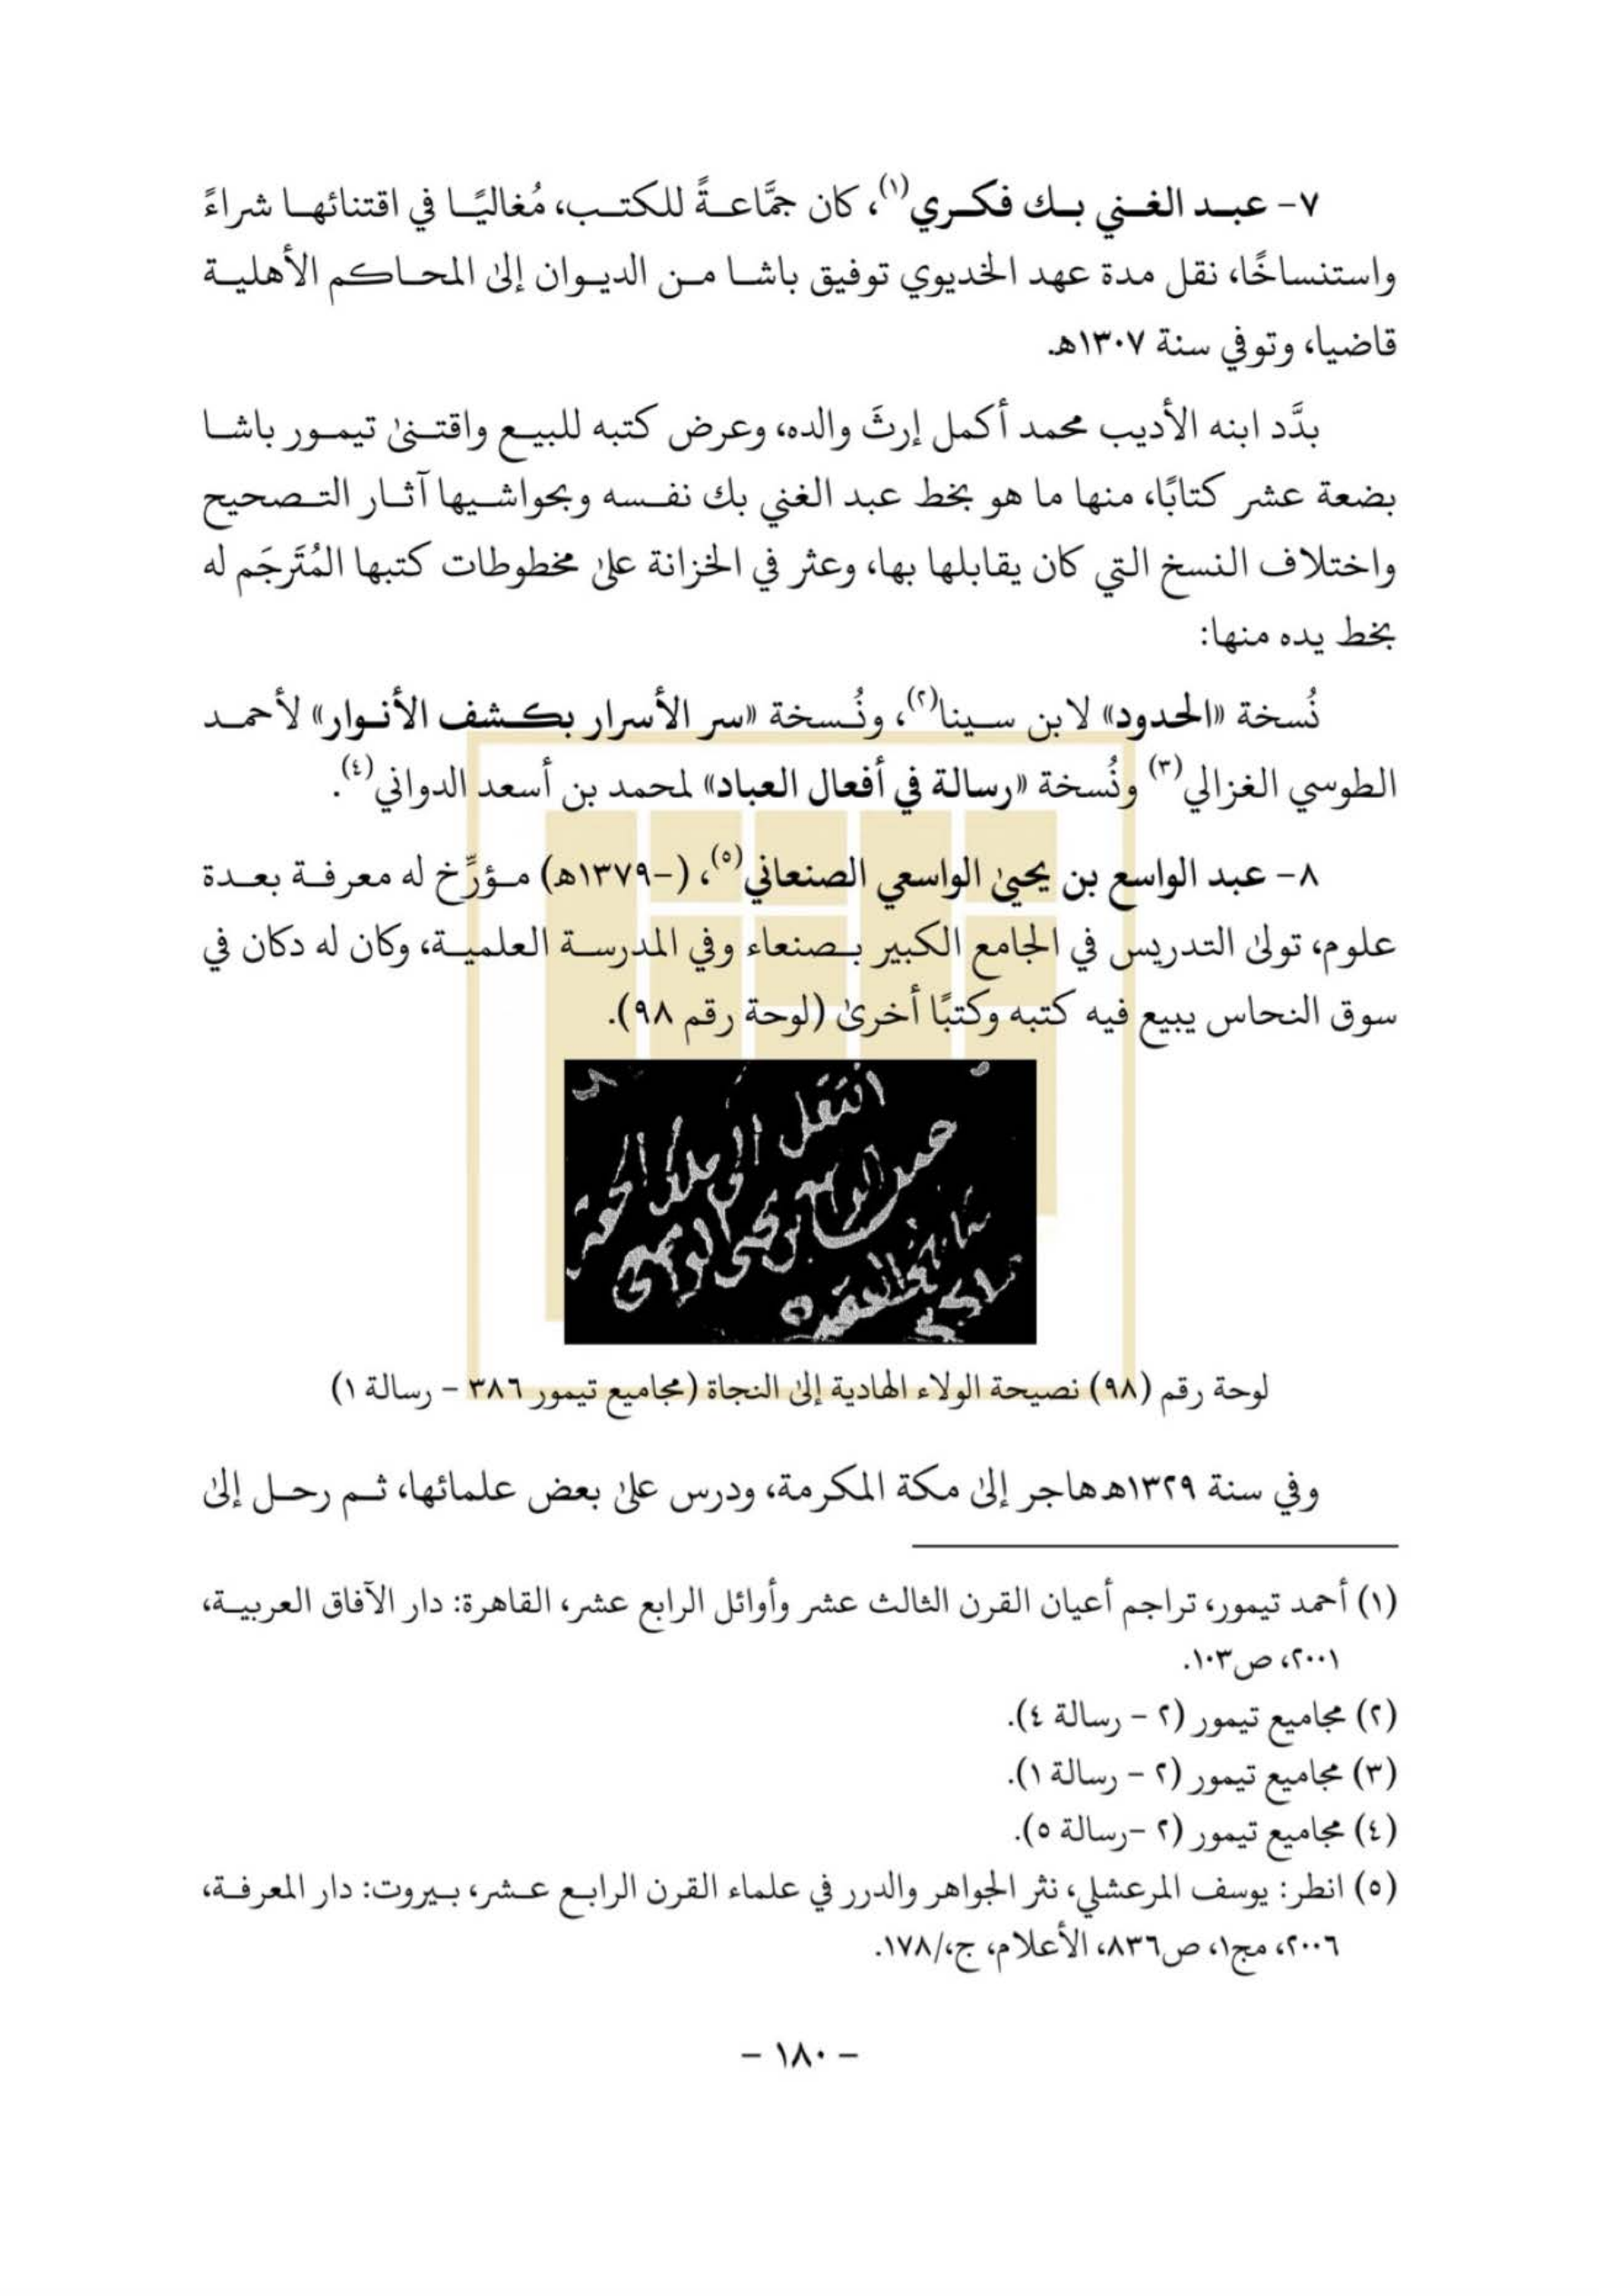 ٧- عبد الغني بك فكري(١)، كان جمَّاعةً للكتب، مُغاليًا في اقتنائها شراءً
واستنساخًا، نقل مدة عهد الخديوي توفيق باشا من الديوان إلى المحاكم الأهلية
قاضيا، وتوفي سنة ١٣٠٧هـ.
بدَّد ابنه الأديب محمد أكمل إرثَ والده، وعرض كتبه للبيع واقتنىٰ تيمور باشا
بضعة عشر كتابًا، منها ما هو بخط عبد الغني بك نفسه وبحواشيها آثار التصحيح
واختلاف النسخ التي كان يقابلها بها، وعثر في الخزانة علىٰ مخطوطات كتبها المُتَرجَم له
بخط يده منها:
نُسخة «الحدود» لابن سينا(٢)، ونُسخة «سر الأسرار بكشف الأنوار» لأحمد
الطوسي الغزالي(٣) ونُسخة «رسالة في أفعال العباد» لمحمد بن أسعد الدواني(٤).
٨- عبد الواسع بن يحيىٰ الواسعي الصنعاني(٥)، (-١٣٧٩هـ) مؤرِّخ له معرفة بعدة
علوم، تولىٰ التدريس في الجامع الكبير بصنعاء وفي المدرسة العلمية، وكان له دكان في
سوق النحاس يبيع فيه كتبه وكتبًا أخرىٰ (لوحة رقم ٩٨).
انتقل الى ملك
لوحة رقم (٩٨) نصيحة الولاء الهادية إلىٰ النجاة (مجاميع تيمور ٣٨٦ - رسالة ١)
وفي سنة ١٣٢٩هـ هاجر إلىٰ مكة المكرمة، ودرس علىٰ بعض علمائها، ثم رحل إلىٰ
(١) أحمد تيمور، تراجم أعيان القرن الثالث عشر وأوائل الرابع عشر، القاهرة: دار الآفاق العربية،
٢٠٠١، ص١٠٣.
(٢) مجاميع تيمور (٢ - رسالة ٤).
(٣) مجاميع تيمور (٢ - رسالة ١).
(٤) مجاميع تيمور (٢ -رسالة ٥).
(٥) انظر: يوسف المرعشلي، نثر الجواهر والدرر في علماء القرن الرابع عشر، بيروت: دار المعرفة،
٢٠٠٦، مج١، ص٨٣٦، الأعلام، ج،/١٧٨.
- ١٨٠ -